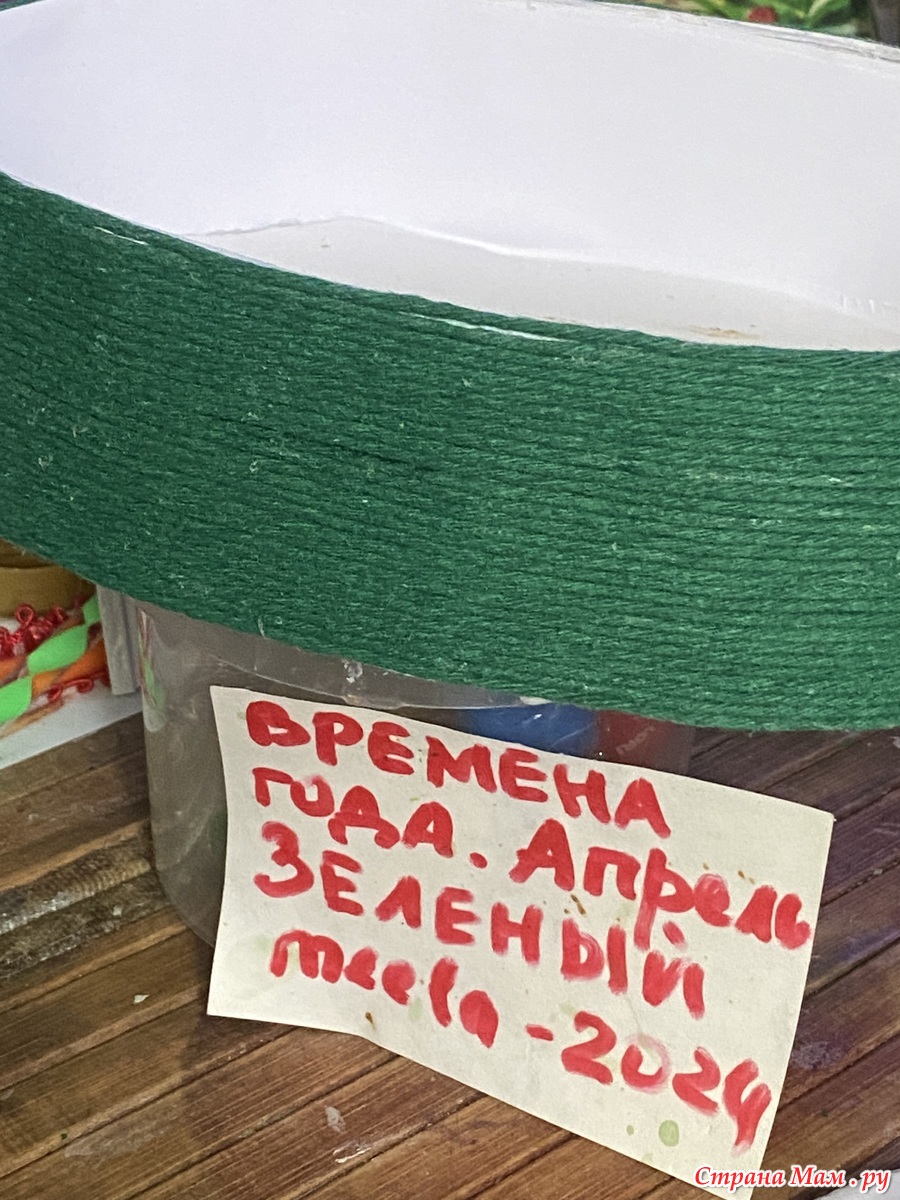 ВРЕМЕНА
ГОДА. Апрель
ЗЕЛЕНЫЙ
-2024
Страна Мам.ру